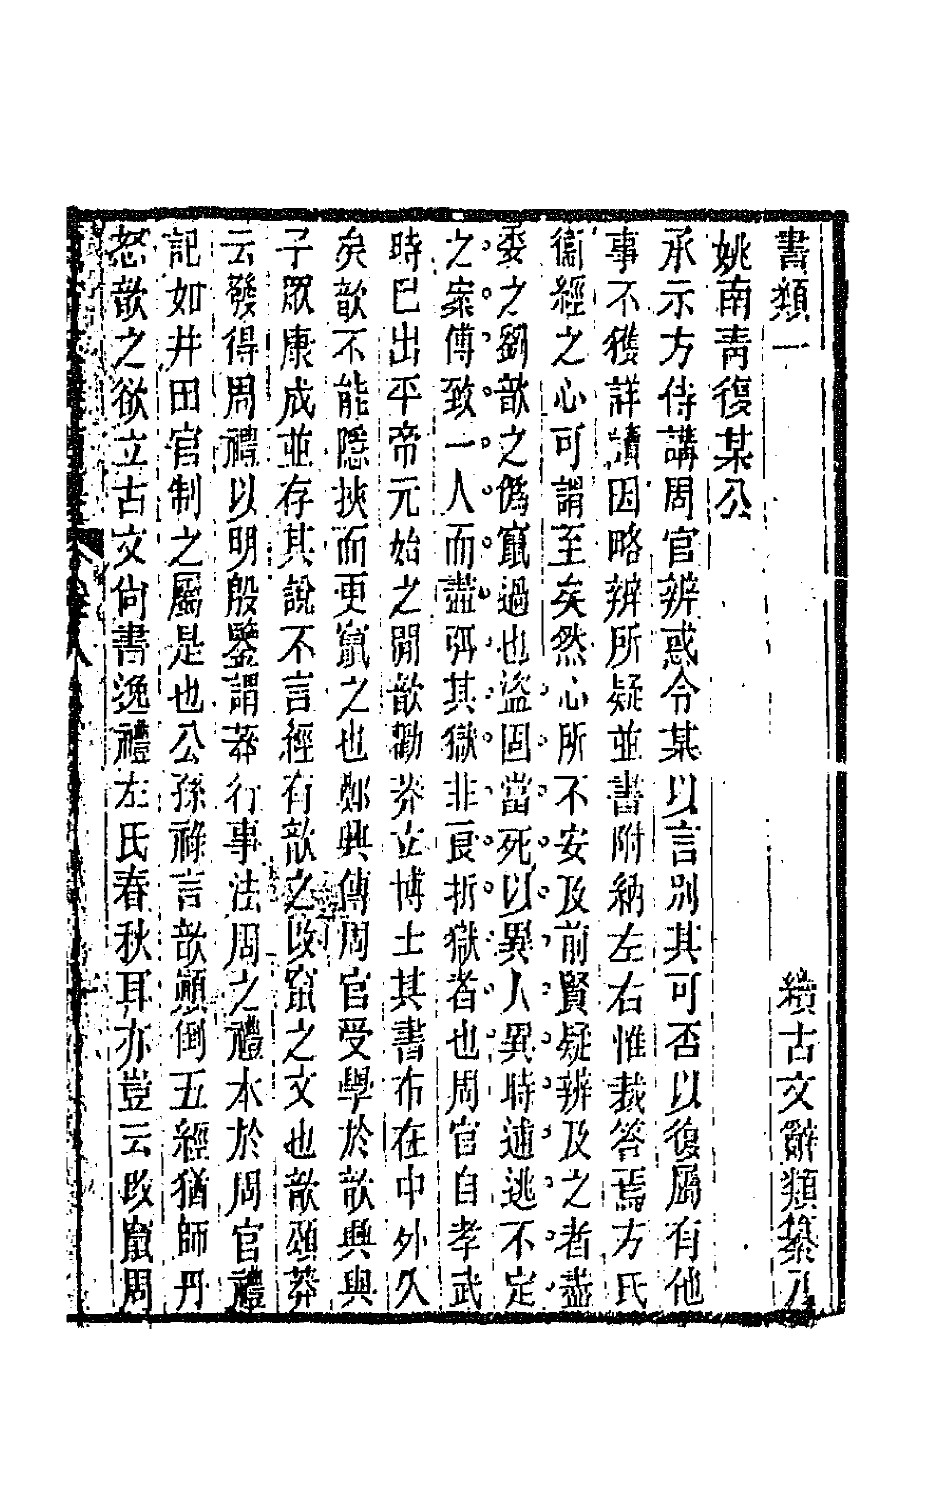 書類一 續古文辭類纂八
姚南青復某公
承示方侍講周官辨惑令某以言別其可否以復屬有他
事不獲詳讀因略辨所疑並書附納左右惟裁答焉方氏
衞經之心可謂至矣然心所不安及前賢疑辨及之者盡
委之劉歆之僞竄過也盜固當死以異人異時逋逃不定
之案傅致一人而盡弭其獄非良折獄者也周官自孝武
時已出平帝元始之閒歆勸莽立博士其書布在中外久
矣歆不能隱挾而更竄之也鄭興傳周官受學於歆興與
子眾康成並存其說不言經有歆之改竄之文也歆頌莽
云發得周禮以明殷鑒謂莽行事法周之禮本於周官禮
記如井田官制之屬是也公孫祿言歆顚倒五經猶師丹
怒歆之欲立古文尙書逸禮左氏春秋耳亦豈云改竄周